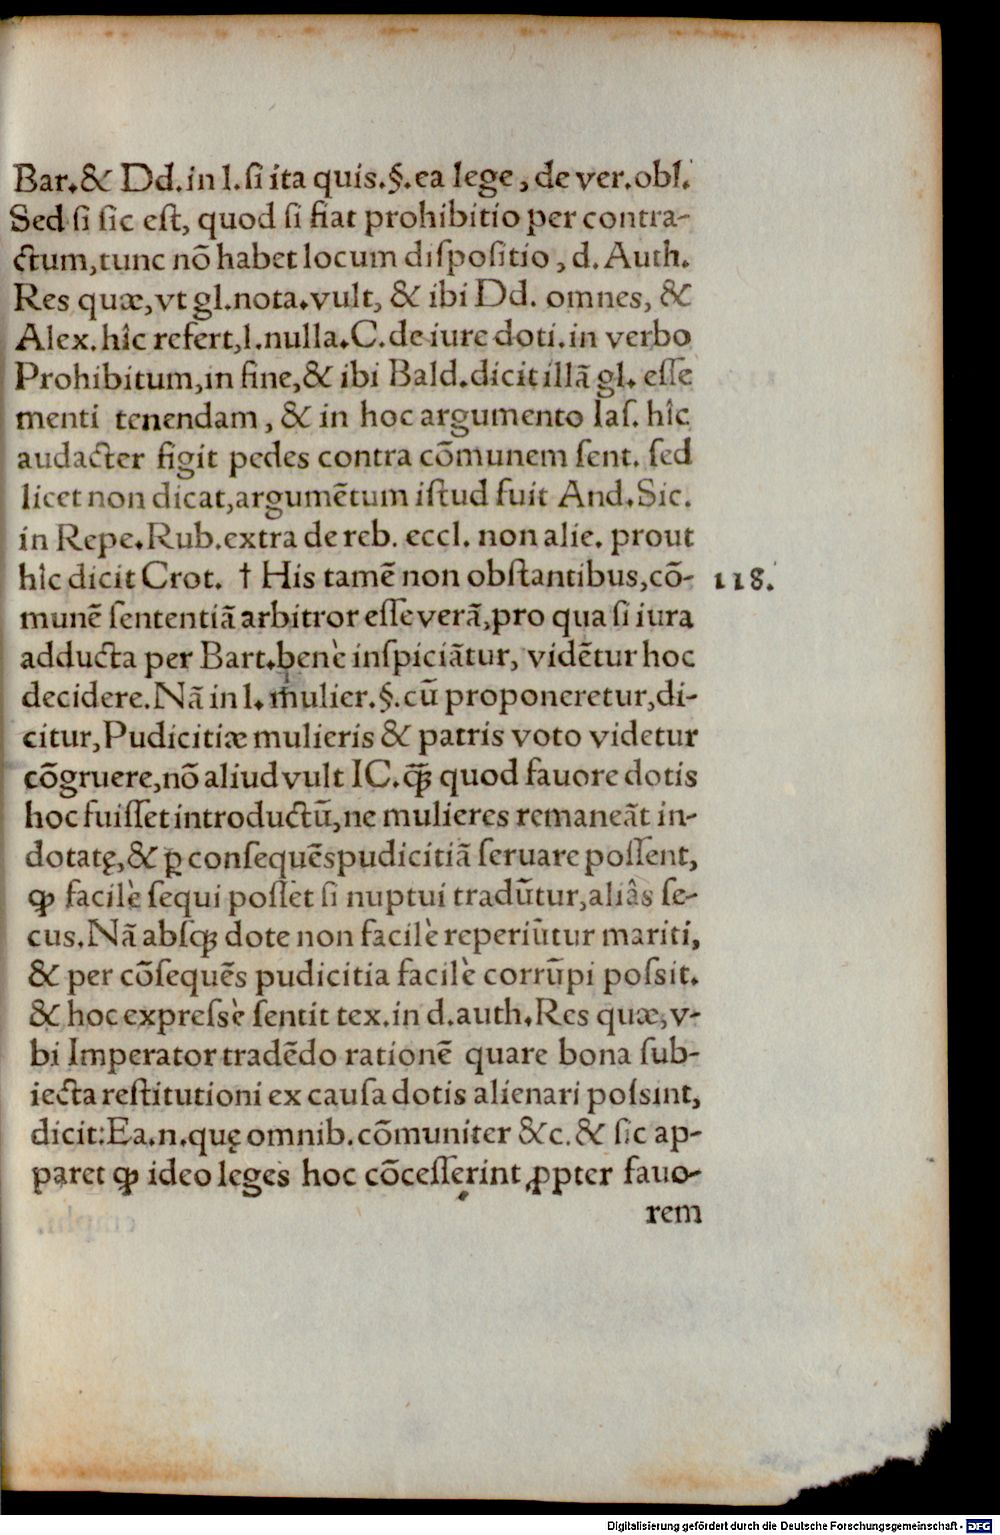 Bar.& Dd.in l.ſi ita quis.§.ea lege, de ver.obl.
Sed ſi ſic eſt, quod ſi fiat prohibitio per contra-
ctum,tunc nõ habet locum diſpoſitio, d. Auth.
Res quæ,vt gl.nota.vult, & ibi Dd. omnes, &
Alex. hîc refert,l.nulla.C.de iure doti.in verbo
Prohibitum,in fine,& ibi Bald.dicit illã gl. eſſe
menti tenendam, & in hoc argumento Iaſ. hîc
audacter figit pedes contra cõmunem ſent. ſed
licet non dicat,argumẽtum iſtud fuit And.Sic.
in Repe.Rub.extra de reb. eccl. non alie. prout
hîc dicit Crot. † His tamẽ non obſtantibus,cõ-
118.
munẽ ſententiã arbitror eſſe verã,pro qua ſi iura
adducta per Bart.benè inſpiciãtur, vidẽtur hoc
decidere.Nã in l. mulier.§.cũ proponeretur,di-
citur,Pudicitiæ mulieris & patris voto videtur
cõgruere,nõ aliud vult IC.ꝗ̃ꝫ quod fauore dotis
hoc fuiſſet introductũ,ne mulieres remaneãt in-
dotatę,& ꝑ conſequẽs pudicitiã ſeruare poſſent,
ꝙ facilè ſequi poſſet ſi nuptui tradũtur,aliâs ſe-
cus.Nã abſqꝫ dote non facilè reperiũtur mariti,
& per cõſequẽs pudicitia facilè corrũpi poſsit.
& hoc expreſsè ſentit tex.in d.auth.Res quæ,v-
bi Imperator tradẽdo rationẽ quare bona ſub-
iecta reſtitutioni ex cauſa dotis alienari poſsint,
dicit:Ea.n.quę omnib.cõmuniter &c.& ſic ap-
paret ꝙ ideo leges hoc cõceſſerint ꝓpter fauo-
rem
Digitalisierung gefördert durch die Deutsche Forschungsgemeinschaft - DFG